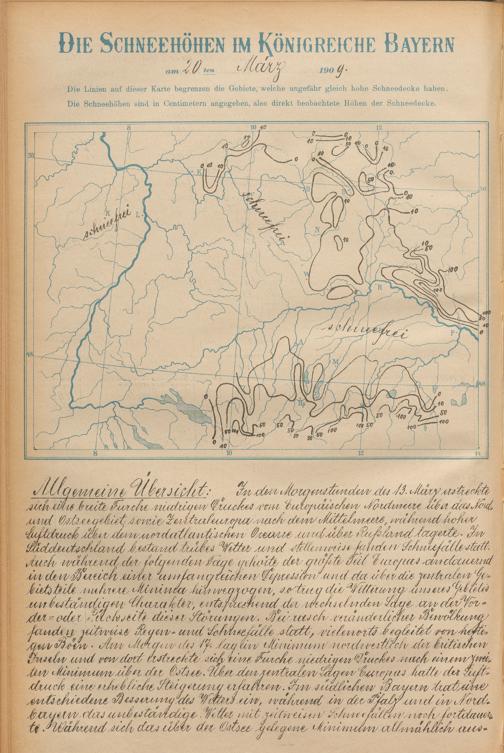 DIE SCHNEEHÖHEN IM KÖNIGREICHE BAYERN
am 20ten März 1909.
Die Linien auf dieser Karte begrenzen die Gebiete, welche ungefähr gleich hohe Schneedecke haben.
Die Schneehöhen sind in Centimetern angegeben, also direkt beobachtete Höhen der Schneedecke.
schneefrei
schneefrei
schneefrei
Allgemeine Übersicht: In den Morgenstunden des 13. März erstreckte
sich eine breite Furche niedrigen Druckes vom Europäischen Nordmeere über das Nord
und Ostseegebiet, sowie Zentraleuropa nach dem Mittelmeere, während hoher
Luftdruck über dem nordatlantischen Oceane und über Rußland lagerte. In
Süddeutschland bestand trübes Wetter und stellenweise fanden Schneefälle statt.
Auch während der folgenden Tage gehörte der größte Teil Europas andauernd
in den Bereich einer umfangreichen Depression und da über die zentralen Ge-
bietsteile mehrere Minima hinwegzogen, so trug die Witterung unseres Gebietes
unbeständigen Charakter, entsprechend der wechselnden Lage an der Vor-
der- oder Rückseite dieser Störungen. Bei rasch veränderlicher Bewölkung
fanden zeitweise Regen- und Schneefälle statt, vielenorts begleitet von hefti-
gen Böen. Am Morgen des 17. lag ein Minimum nordwestlich der britischen
Inseln und von dort erstreckte sich eine Furche niedrigen Druckes nach einem zwei-
ten Minimum über der Ostsee. Über den zentralen Lagen Europas hatte der Luft-
druck eine erhebliche Steigerung erfahren. Im südlichen Bayern trat eine
entschiedene Besserung des Wetters ein, während in der Pfalz und in Nord-
bayern das unbeständige Wetter mit zeitweisen Schneefällen noch fortdauer-
te. Während sich das über der Ostsee gelegene Minimum allmählich aus-